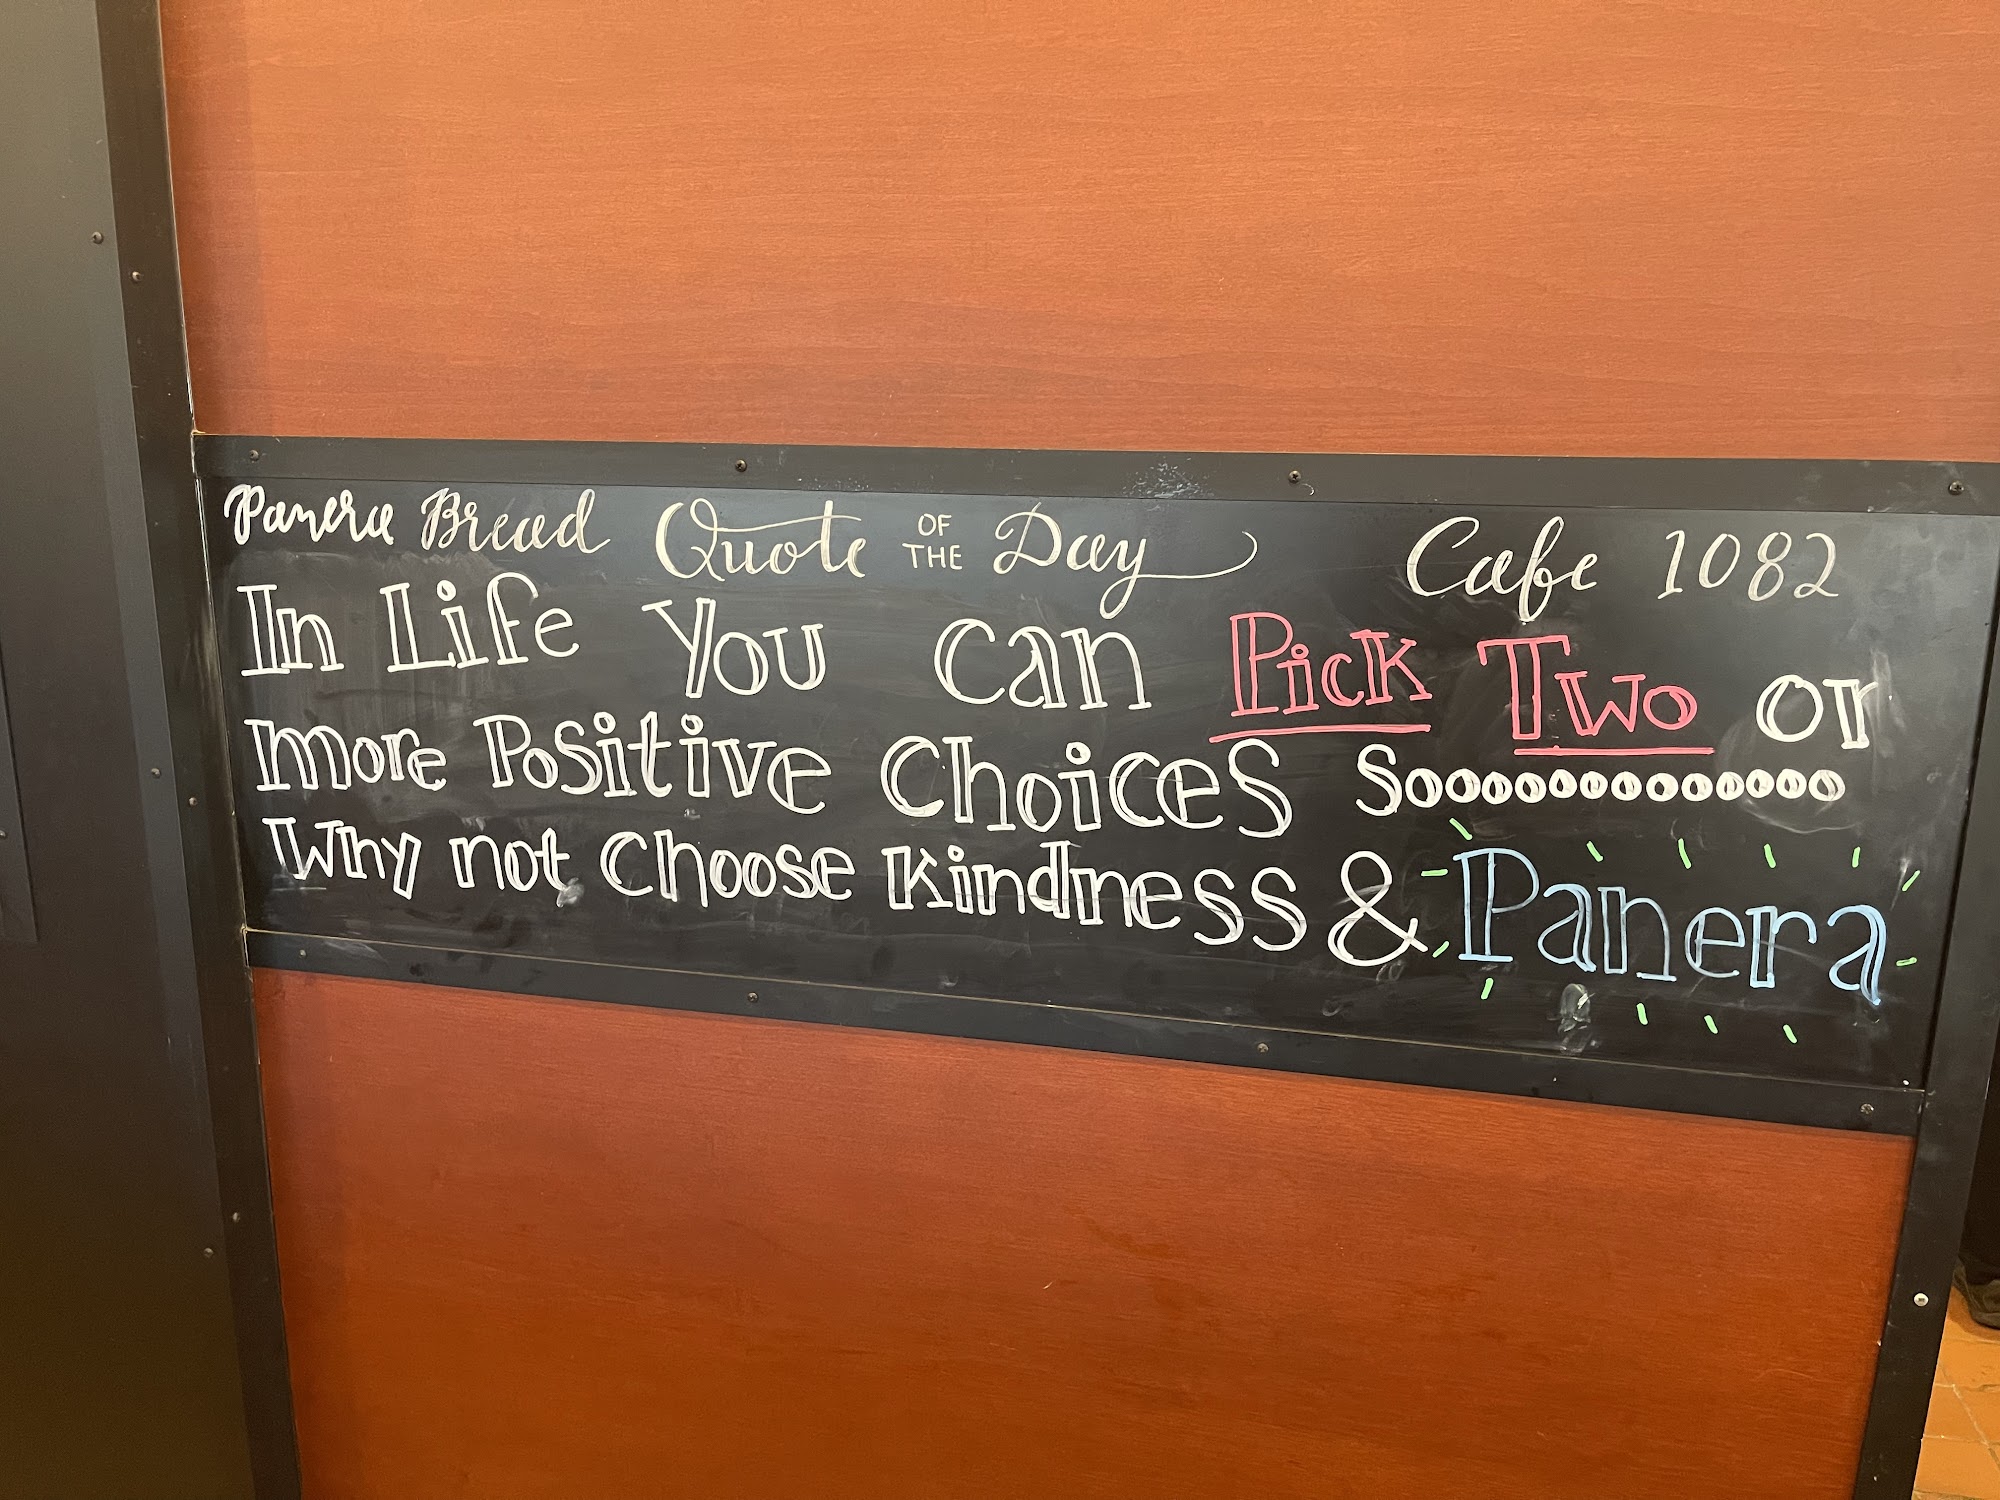 Panera Bread Quote OF THE Day Cafe 1082
In Life You Can Pick Two or
more Positive Choices Soooooooooooooo
Why not Choose Kindness & Panera